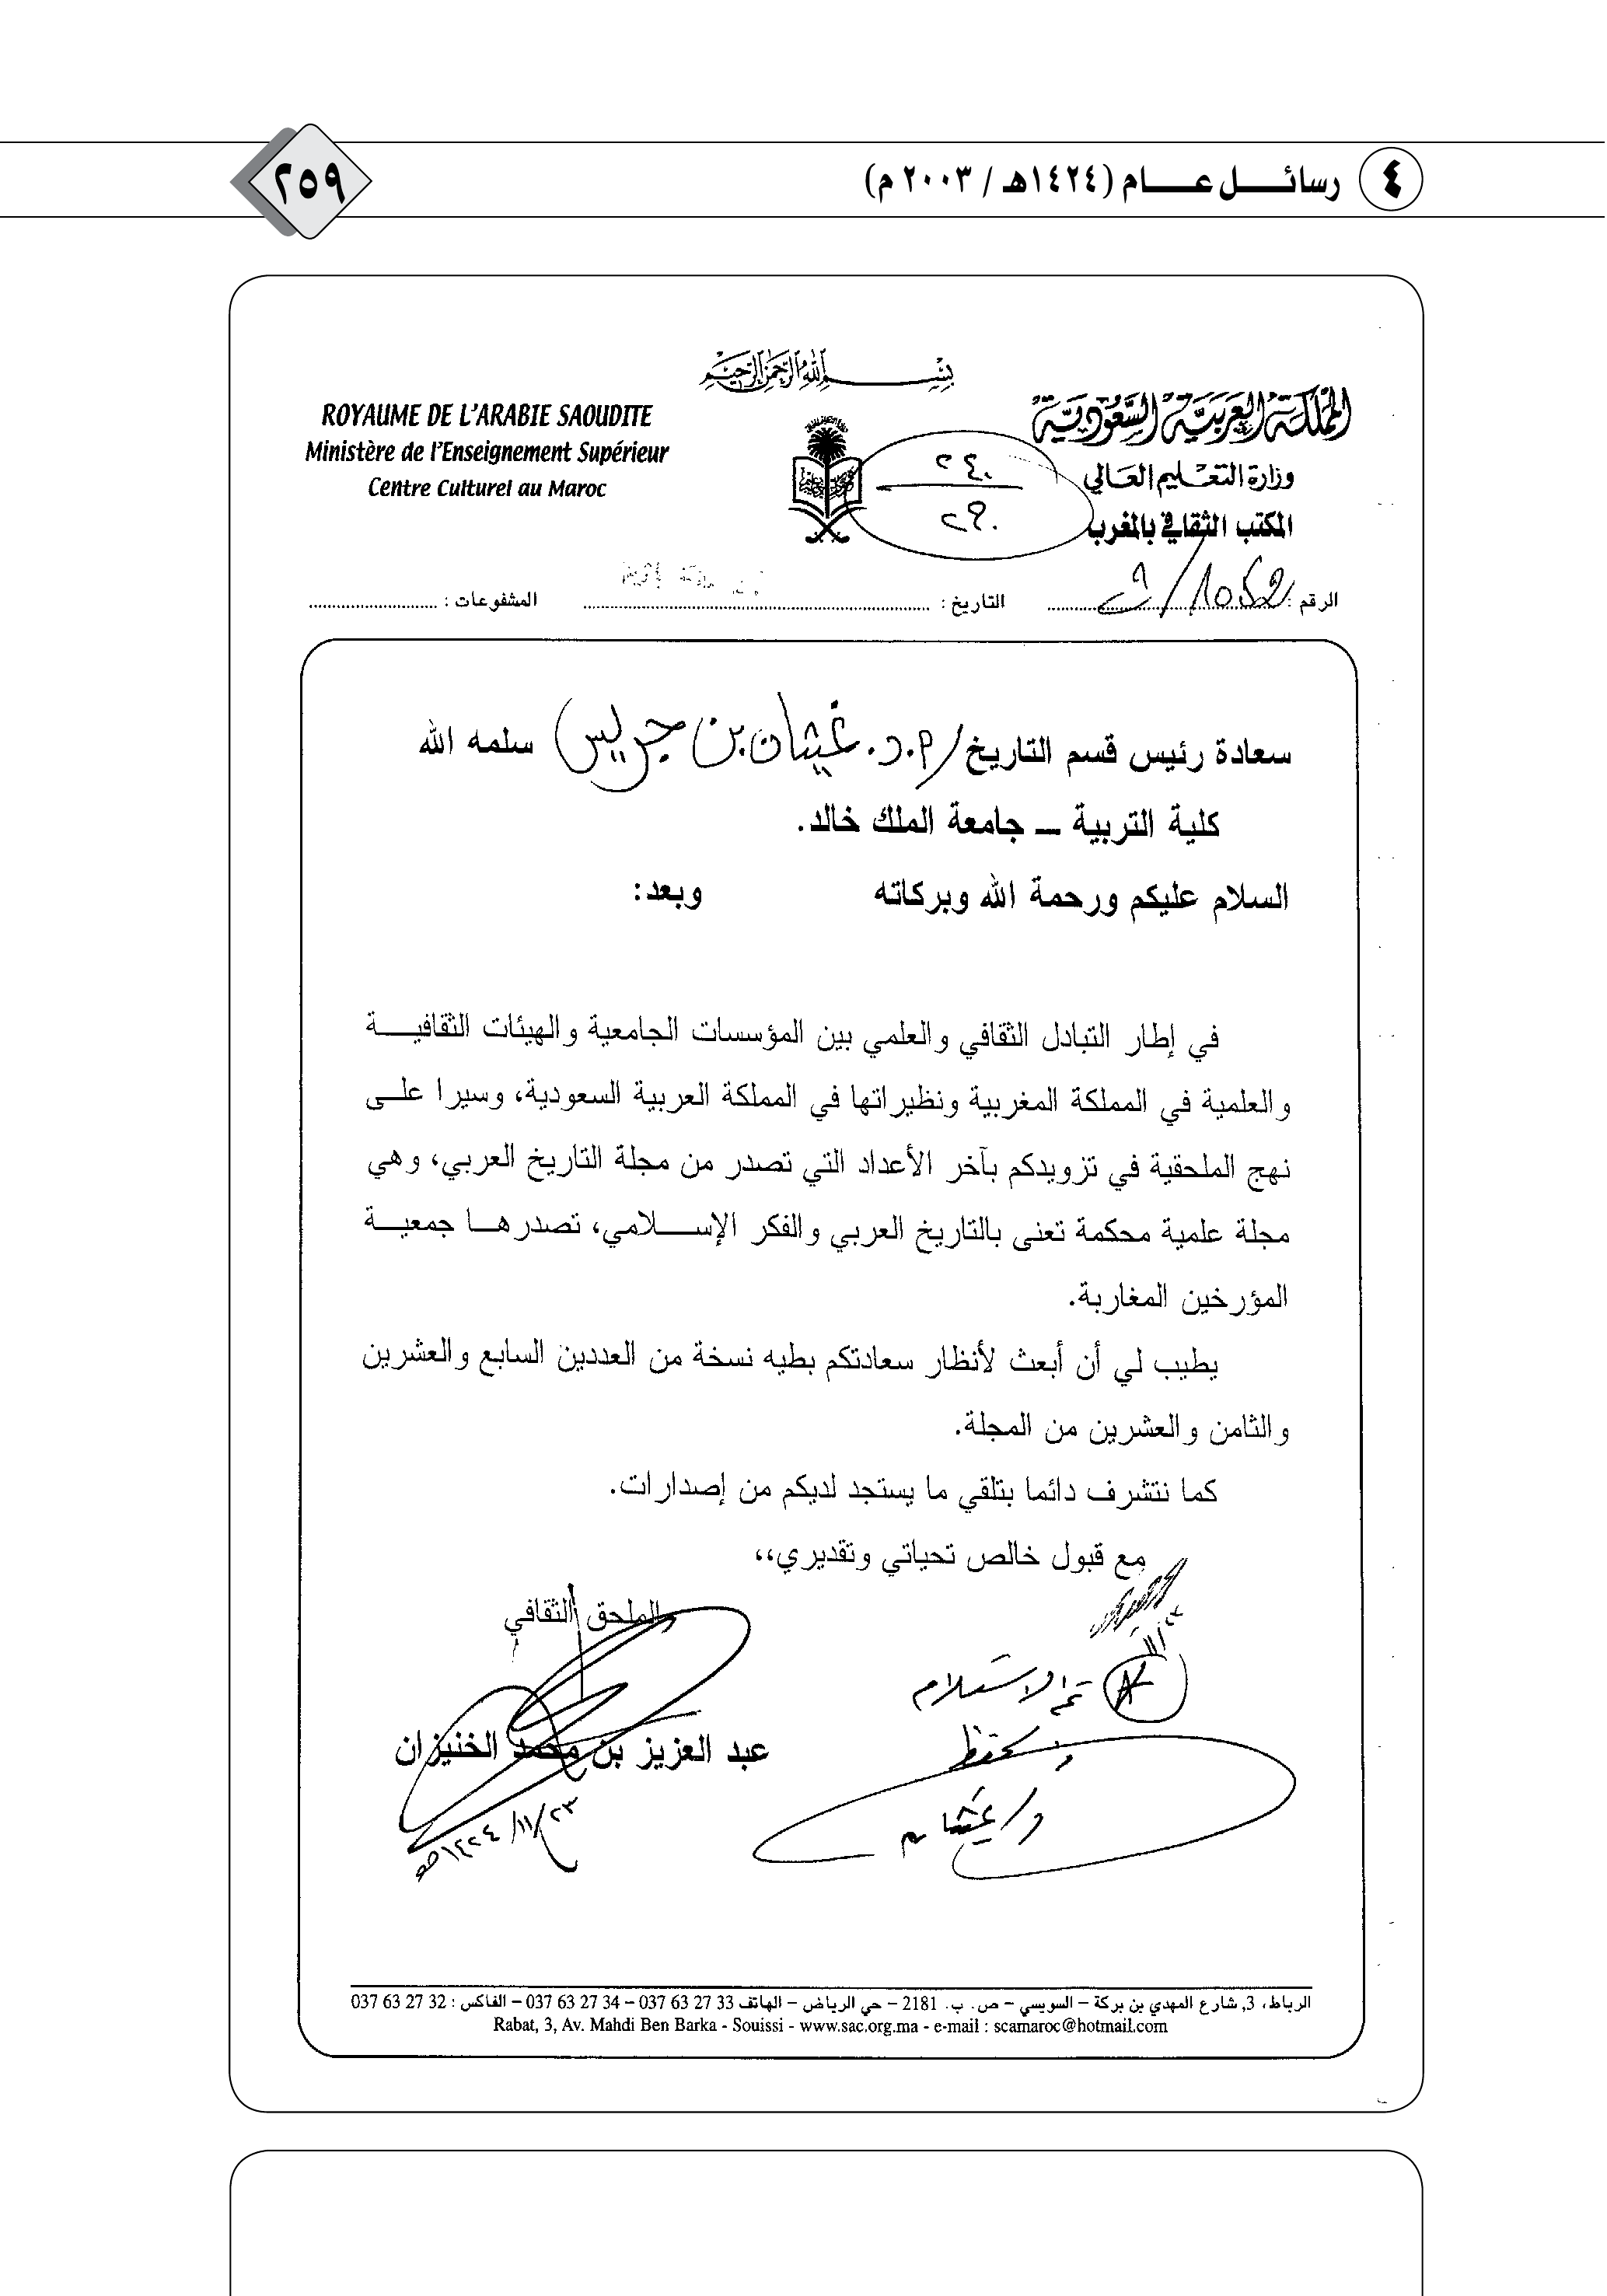 ٤ رسائل عام (١٤٢٤هـ / ٢٠٠٣ م)
٢٥٩
بسم الله الرحمن الرحيم
المملكة العربية السعودية
وزارة التعليم العالي
المكتب الثقافي بالمغرب
ROYAUME DE L'ARABIE SAOUDITE
Ministère de l'Enseignement Supérieur
Centre Culturel au Maroc
٢٤٠
٢٩٠
الرقم :
التاريخ :
المشفوعات :
سعادة رئيس قسم التاريخ / أ.د. غيثان بن جريس سلمه الله
كلية التربية – جامعة الملك خالد.
السلام عليكم ورحمة الله وبركاته وبعد:
في إطار التبادل الثقافي والعلمي بين المؤسسات الجامعية والهيئات الثقافية
والعلمية في المملكة المغربية ونظيراتها في المملكة العربية السعودية، وسيرا على
نهج الملحقية في تزويدكم بآخر الأعداد التي تصدر من مجلة التاريخ العربي، وهي
مجلة علمية محكمة تعنى بالتاريخ العربي والفكر الإسلامي، تصدرها جمعية
المؤرخين المغاربة.
يطيب لي أن أبعث لأنظار سعادتكم بطيه نسخة من العددين السابع والعشرين
والثامن والعشرين من المجلة.
كما نتشرف دائما بتلقي ما يستجد لديكم من إصدارات.
مع قبول خالص تحياتي وتقديري،،
الملحق الثقافي
تم الاستلام
عبد العزيز بن محمد الخنيزان
د/غيثان
٢٣/١١/١٤٢٤هـ
الرباط، 3, شارع المهدي بن بركة – السويسي – ص. ب. 2181 – حي الرياض – الهاتف 33 27 63 037 – 34 27 63 037 – الفاكس : 32 27 63 037
Rabat, 3, Av. Mahdi Ben Barka - Souissi - www.sac.org.ma - e-mail : scamaroc@hotmail.com